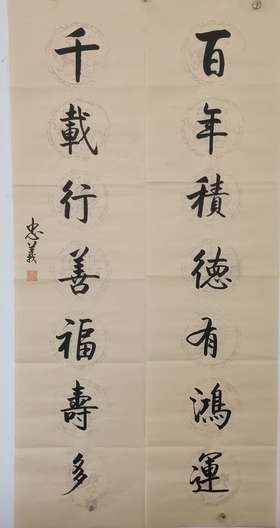 百年積德有鴻運
千載行善福壽多
忠義